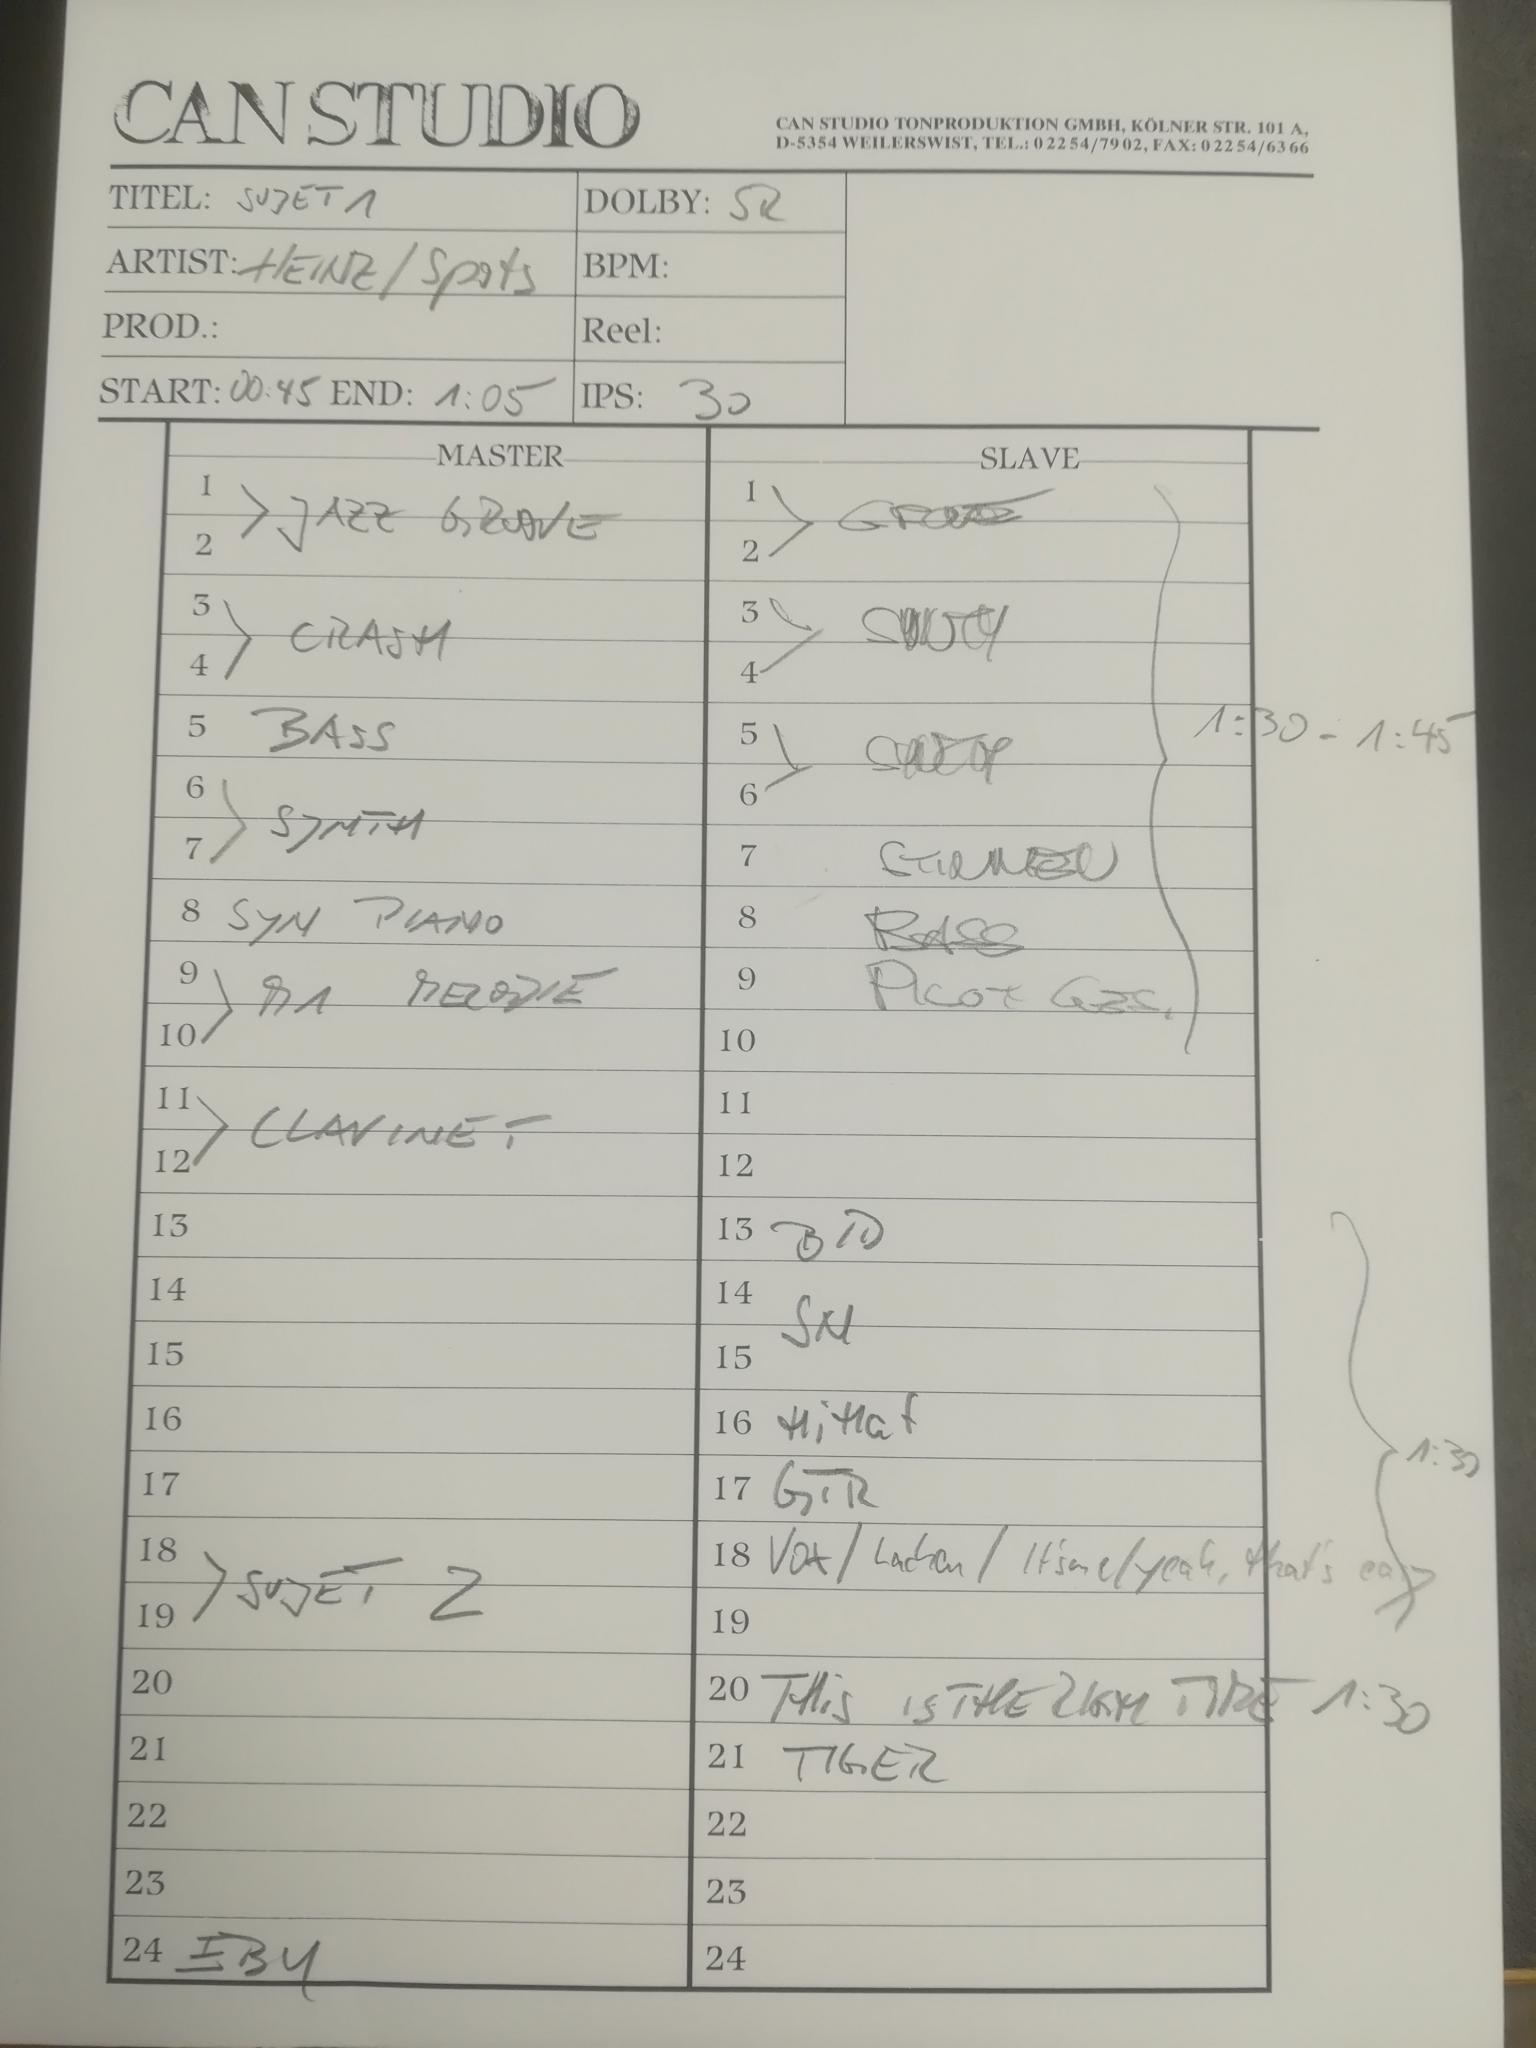 CAN STUDIO
CAN STUDIO TONPRODUKTION GMBH, KÖLNER STR. 101 A,
D-5354 WEILERSWIST, TEL.: 0 22 54/79 02, FAX: 0 22 54/63 66
TITEL: SUJET 1 DOLBY: SR
ARTIST: HEINZ/Spots BPM:
PROD.: Reel:
START: 00:45 END: 1:05 IPS: 30
MASTER
1
2 JAZZ GROOVE
3
4 CRASH
5 BASS
6
7 SYNTH
8 SYN PIANO
9
10 M1 MELODIE
11
12 CLAVINET
13
14
15
16
17
18
19 SUJET 2
20
21
22
23
24
SLAVE
1
2
3
4
5
6
7 STIMMEN
8 BASS
9
10
1:30 - 1:45
11
12
13 BD
14
15 SN
16 HiHat
17 GTR
18 Vox / Lachen / It's me / yeah, that's
19
1:30
20 THis iS THE TIME 1:30
21 TIGER
22
23
24